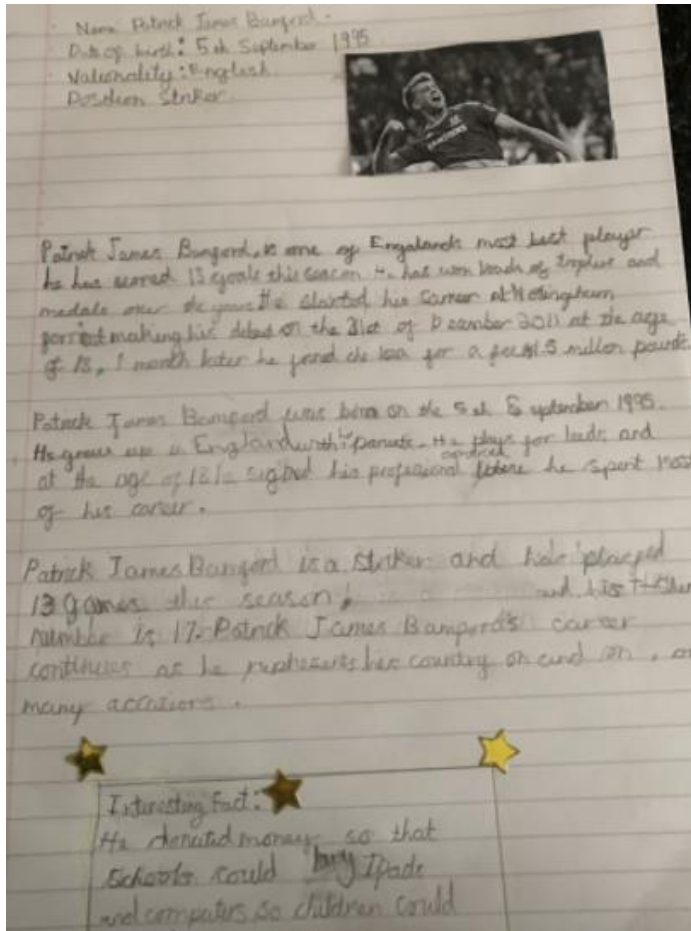 Name Patrick James Bamford.
Date of birth: 5th September 1995
Nationality: English
Position Striker
Patrick James Bamford, is one of Engalands most best player
he has scored 13 goals this season He has won loads of trophies and
medals over the years He started his career at Notingham
making his debut on the 31st of December 2011 at the age
of 18, 1 month later he joined for a fee of 1.5 million pounds
Patrick James Bamford was born on the 5th September 1995.
He grew up in England with his parents. He plays for leeds and
at the age of 18 he signed his profesional contract where he spent most
of his career.
Patrick James Bamford is a striker and has played
13 games this season, and his T-shirt
number is 17. Patrick James Bamford's career
continues as he represents his country on and on, on
many accasions.
Interesting Fact:
He donated money so that
Schools could buy Ipads
and computers so children could